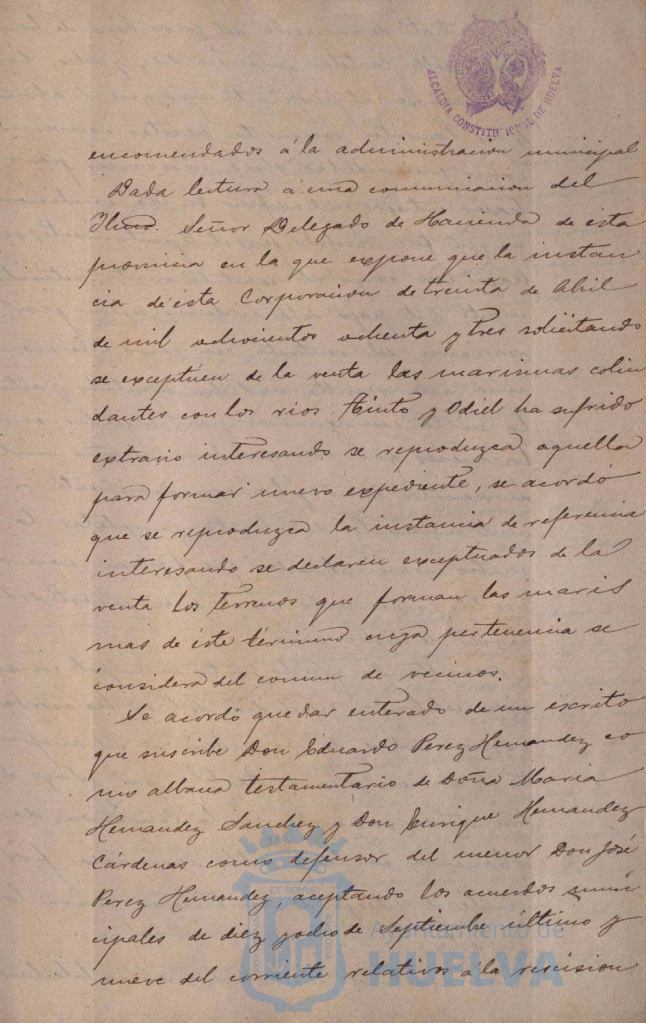 ALCALDIA CONSTITUCIONAL DE HUELVA
encomendados á la administracion municipal
Dada lectura á una comunicacion del
Ilmo. Señor Delegado de Hacienda de esta
provincia en la que expone que la instan
cia de ésta Corporacion de treinta de Abril
de mil ochocientos ochenta y tres solicitando
se exceptúen de la venta las marismas colin
dantes con los rios Tinto y Odiel ha sufrido
extravio interesando se reproduzca aquella
para formar nuevo expediente, se acordó
que se reproduzca la instancia de referencia
interesando se declaren exceptuados de la
venta los terrenos que forman las maris
mas de éste término cuya pertenencia se
considera del comun de vecinos.
Se acordó quedar enterado de un escrito
que suscribe Don Eduardo Perez Hernandez co
mo albacea testamentario de Doña Maria
Hernandez Sanchez y Don Enrique Hernandez
Cárdenas como defensor del menor Don José
Perez Hernandez, aceptando los acuerdos muni
cipales de diez y ocho de Septiembre último y
nueve del corriente relativos á la rescision
Ayuntamiento de
HUELVA